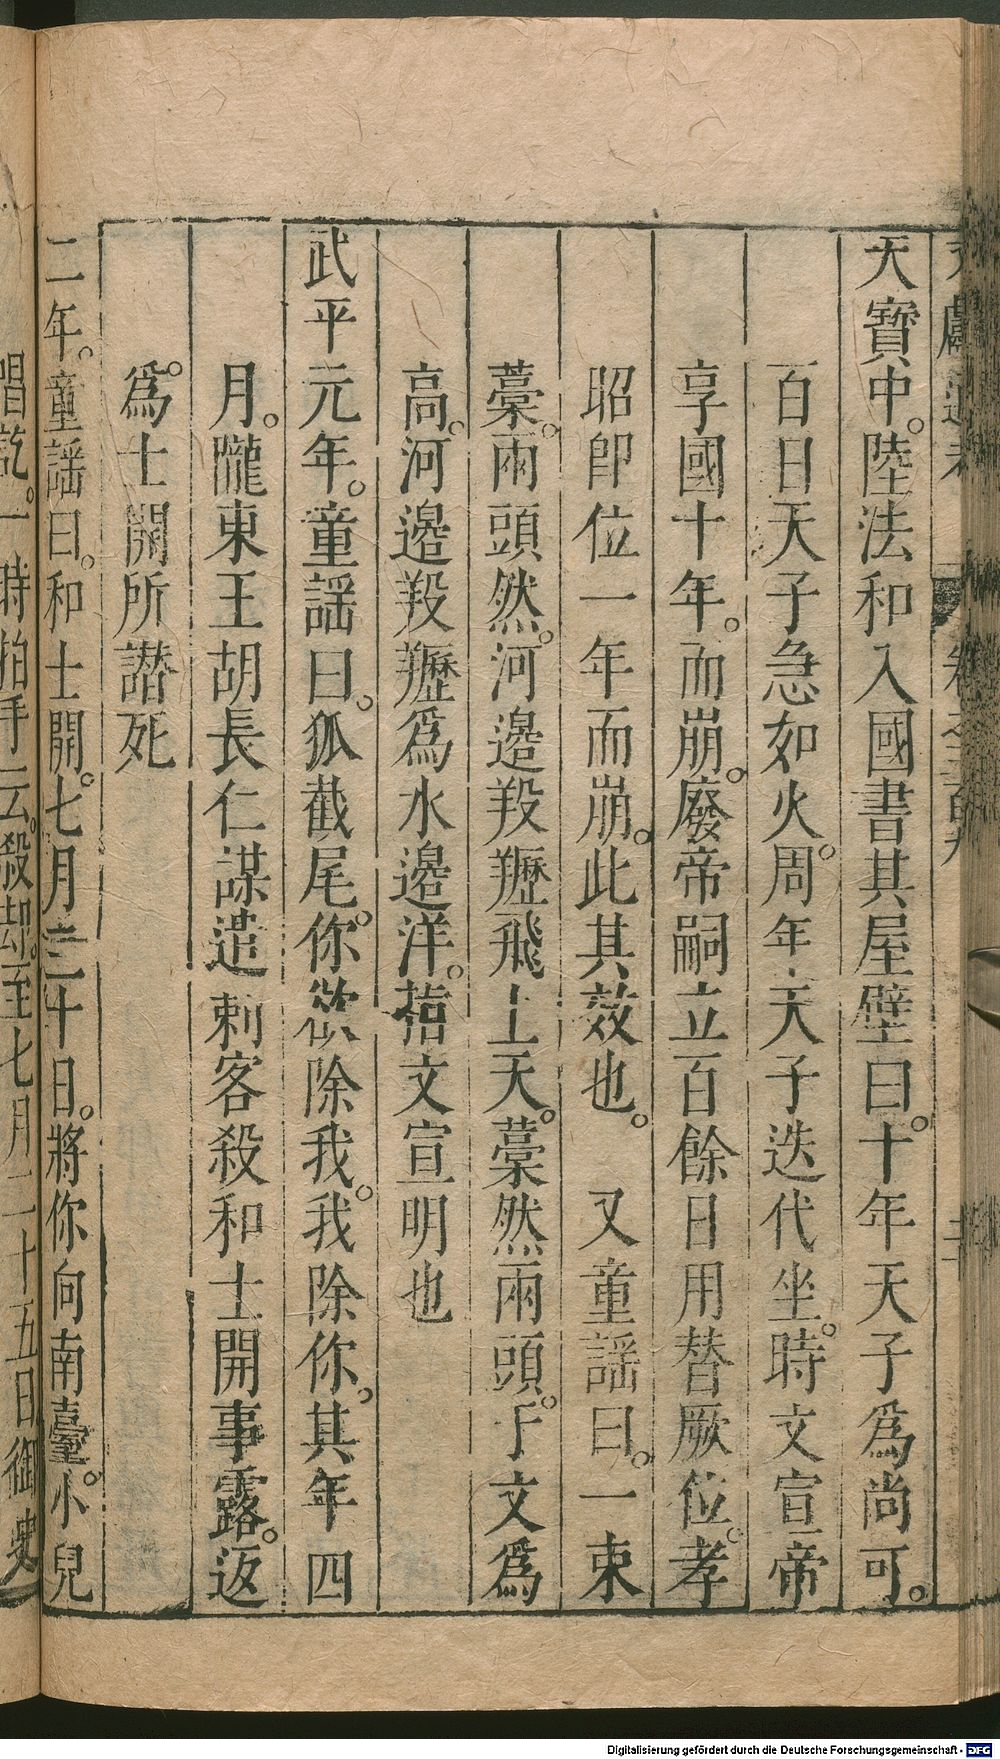 卷之三百九
天寶中。陸法和入國書其屋壁曰。十年天子爲尚可。
百日天子急如火。周年天子迭代坐。時文宣帝
享國十年。而崩。廢帝嗣立百餘日用替厥位。孝
昭卽位一年而崩。此其效也。 又童謡曰。一束
藁。兩頭然。河邊羖䍽飛上天。藁然兩頭。于文爲
高。河邊羖䍽爲水邊洋。指文宣明也
武平元年。童謡曰。狐截尾。你欲除我。我除你。其年四
月。隴東王胡長仁謀遣刺客殺和士開事露。返
爲。士開所譖死
二年。童謡曰。和士開。七月三十日。將你向南臺。小兒
唱訖。一時拍手云。殺却。至七月二十五日御史
Digitalisierung gefördert durch die Deutsche Forschungsgemeinschaft - DFG